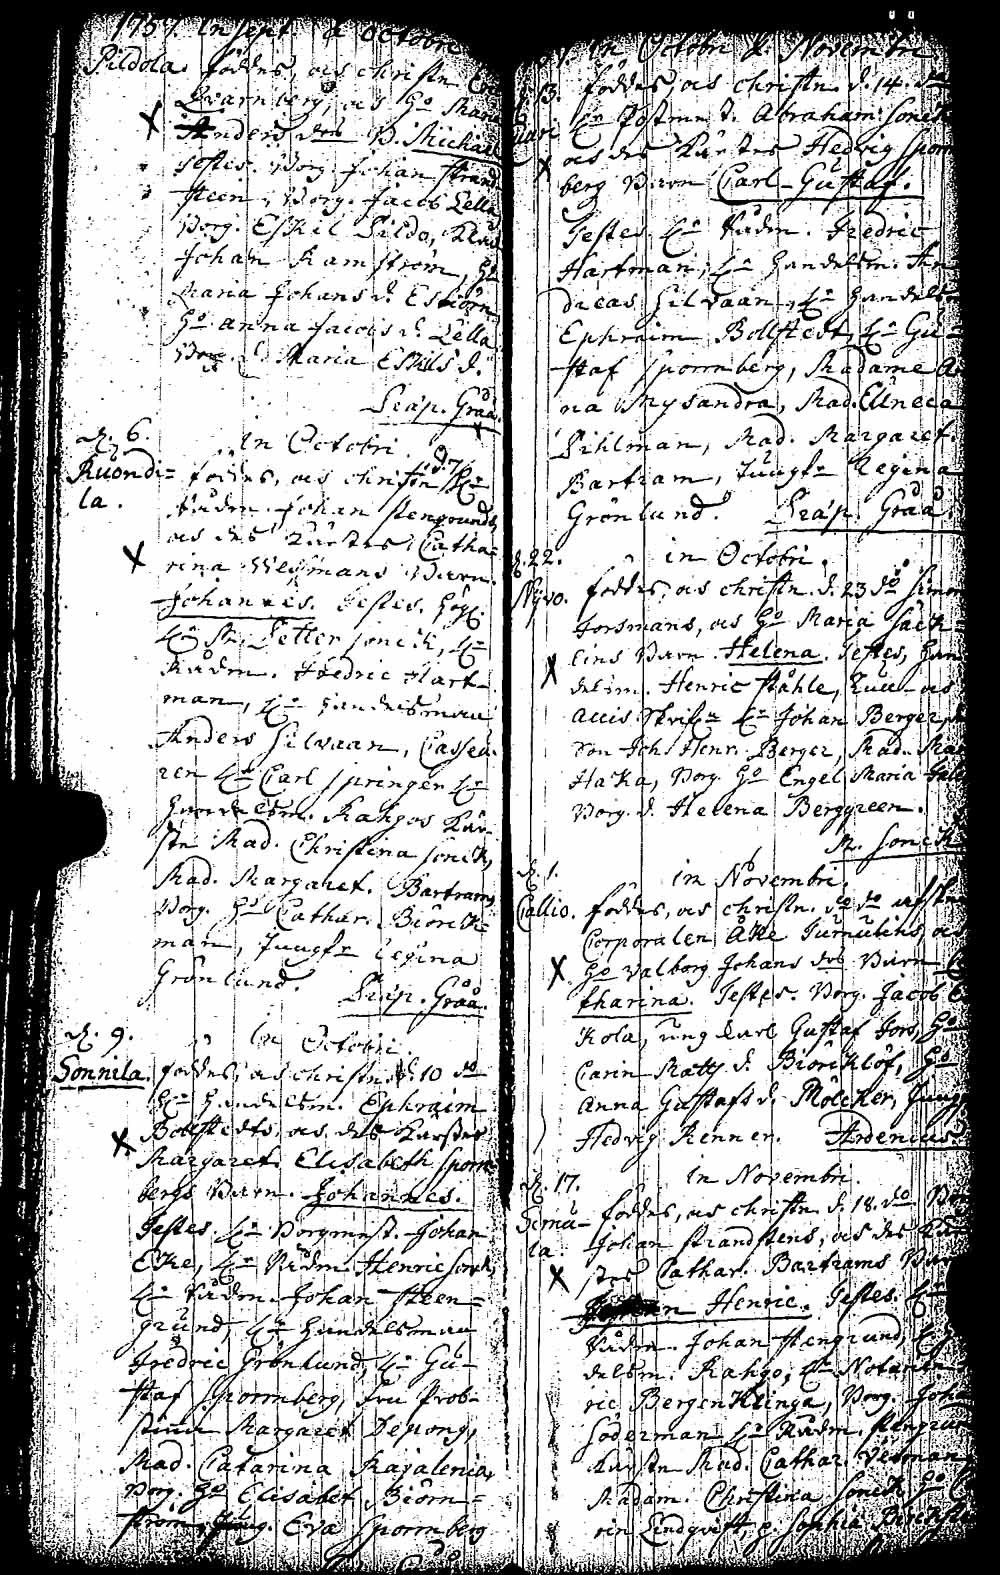 1757. In Sept. & Octobri
Pildola. föddes, och christn
Qvarnberg, och Ho Maria
Anders dos B. Michael
testes. Borg. Johan Strand
steen, Borg. Jacob Lella
Borg. Eskil Pildo,
Johan Ramström, Ho
Maria Johans d. Esbiörn
Ho Anna Jacobs d. Lella
Borg. d. Maria Eskils d.
Præp. Graå.
d. 6. in Octobri.
Kuondi= föddes, och christn d. 7
la. Rådm. Johan Stengrunds
och des Kärestas, Catha=
rina Wesmans Barn.
Johannes. Testes,
Hr Mr. Petter Jonick, Hr
Rådm. Fredric Hart=
man, Hr Handelsman
Anders Silvaan, Casseu=
ren Hr Carl Springer Hr
Handelsm. Rahgos Kär=
sta Mad. Christina Jonick,
Mad. Margaret. Bartram,
Borg. Ho Cathar. Biörck=
man, Jungfr Regina
Grönlund. Præp. Graå.
d. 9. in Octobri
Sonnila. föddes, och christn d. 10 do
Hr Handelsm. Ephraim
Bollstedts, och des Kärestas
Margaret. Elisabeth Sporrn
bergs Barn. Johannes.
Testes. Hr Borgmest. Johan
Eke, Hr Rådm Henric Jonick,
Hr Rådm. Johan Steen=
grund, Hr Handelsman
Fredric Grönlund, Hr Gu=
staf Sporrnberg, Fru Prob=
stinna Margaret Depong,
Mad. Catarina Kajalenia,
Borg. Ho Elisabet Biörn=
ström, Jung. Eva Sporrnberg
In Octobri & Novembri
d. 13. föddes, och christn. d. 14. do
Hr Postm. d. Abraham Jonick
och des Kärestas Hedvig Sporrn
berg Barn Carl-Gustaf.
Testes. Hr Rådm. Fredric
Hartman, Hr Handelsm. An=
dreas Silvaan, Hr Handels
Ephraim Bollstedt, Hr Gu=
staf Sporrnberg, Madame An
na Mysandra, Mad.
Pihlman, Mad. Margaret.
Bartram, Jungfr Regina
Grönlund. Præp. Graå.
d. 22. in Octobri.
Nyvo. föddes, och christn. d. 23 do Simon
Forsmans, och Ho Maria Säck=
lins Barn Helena. Testes, Han
delsm. Henric Ståhle, Tull- och
accis Skrifv. Hr Johan Berger,
son Joh. Henr. Berger, Mad. Mar
Haka, Borg. Ho Engel Maria
Borg. d. Helena Berggreen.
Mr. Jonick
d. 1. in Novembri.
Callio. föddes, och christn. do do
Corporalen Åke
Ho Valborg Johans dos Barn Ca
tharina. Testes. Borg. Jacob
Kola, ung karl Gustaf Fors, Ho
Carin Matts d. Biörcklöf, Ho
Anna Gustafs d. Mölcker, Jungf
Hedvig Renner. Ardenius
d. 17. in Novembri.
Simu= föddes, och christn. d. 18. do Bor
la. Johan Strandstens, och des Kär
stas Cathar. Bartrams Barn
Henric. Testes. Hr
Rådm. Johan Stengrund, Hr
delsm. Rahgo, Hr Notarien
ric Bergenklinga, Borg. Joha
Söderman Hr Rådm. Stengrun
Kärsta Mad. Cathar. Vesman,
Madam. Christina Jonick Ho Ca
rin Lindqvist, p. Sophia